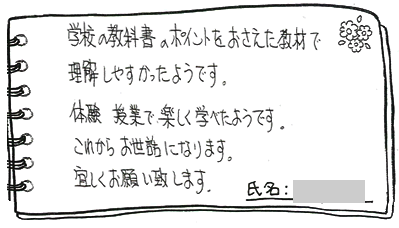 学校の教科書のポイントをおさえた教材で
理解しやすかったようです。
体験授業で、楽しく学べたようです。
これからお世話になります。
宜しくお願い致します。
氏名: